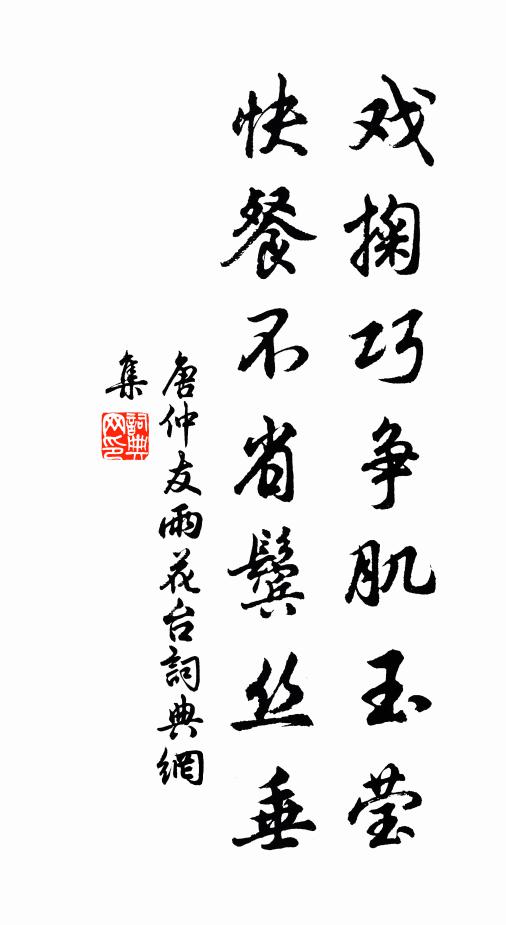 戏掬巧争肌玉莹
快餐不省鬓丝垂
唐仲友雨花台詞典網
集
詞典
网印